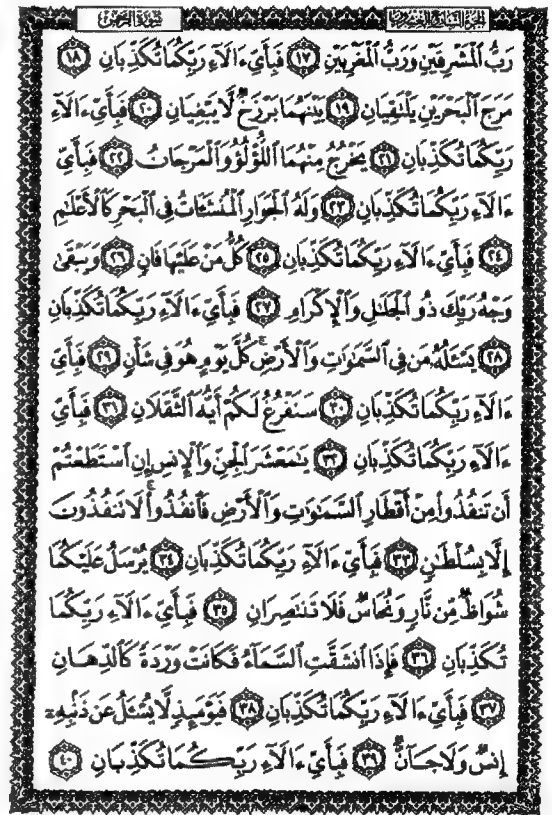 سُورَةُ الرَّحْمٰن الجزء السابع والعشرون
رَبُّ ٱلْمَشْرِقَيْنِ وَرَبُّ ٱلْمَغْرِبَيْنِ ١٧ فَبِأَيِّ ءَالَآءِ رَبِّكُمَا تُكَذِّبَانِ ١٨
مَرَجَ ٱلْبَحْرَيْنِ يَلْتَقِيَانِ ١٩ بَيْنَهُمَا بَرْزَخٌ لَّا يَبْغِيَانِ ٢٠ فَبِأَيِّ ءَالَآءِ
رَبِّكُمَا تُكَذِّبَانِ ٢١ يَخْرُجُ مِنْهُمَا ٱللُّؤْلُؤُ وَٱلْمَرْجَانُ ٢٢ فَبِأَيِّ
ءَالَآءِ رَبِّكُمَا تُكَذِّبَانِ ٢٣ وَلَهُ ٱلْجَوَارِ ٱلْمُنشَـَٔاتُ فِى ٱلْبَحْرِ كَٱلْأَعْلَـٰمِ
٢٤ فَبِأَيِّ ءَالَآءِ رَبِّكُمَا تُكَذِّبَانِ ٢٥ كُلُّ مَنْ عَلَيْهَا فَانٍ ٢٦ وَيَبْقَىٰ
وَجْهُ رَبِّكَ ذُو ٱلْجَلَـٰلِ وَٱلْإِكْرَامِ ٢٧ فَبِأَيِّ ءَالَآءِ رَبِّكُمَا تُكَذِّبَانِ
٢٨ يَسْـَٔلُهُۥ مَن فِى ٱلسَّمَـٰوَٰتِ وَٱلْأَرْضِ ۚ كُلَّ يَوْمٍ هُوَ فِى شَأْنٍ ٢٩ فَبِأَيِّ
ءَالَآءِ رَبِّكُمَا تُكَذِّبَانِ ٣٠ سَنَفْرُغُ لَكُمْ أَيُّهَ ٱلثَّقَلَانِ ٣١ فَبِأَيِّ
ءَالَآءِ رَبِّكُمَا تُكَذِّبَانِ ٣٢ يَـٰمَعْشَرَ ٱلْجِنِّ وَٱلْإِنسِ إِنِ ٱسْتَطَعْتُمْ
أَن تَنفُذُوا۟ مِنْ أَقْطَارِ ٱلسَّمَـٰوَٰتِ وَٱلْأَرْضِ فَٱنفُذُوا۟ ۚ لَا تَنفُذُونَ
إِلَّا بِسُلْطَـٰنٍ ٣٣ فَبِأَيِّ ءَالَآءِ رَبِّكُمَا تُكَذِّبَانِ ٣٤ يُرْسَلُ عَلَيْكُمَا
شُوَاظٌ مِّن نَّارٍ وَنُحَاسٌ فَلَا تَنتَصِرَانِ ٣٥ فَبِأَيِّ ءَالَآءِ رَبِّكُمَا
تُكَذِّبَانِ ٣٦ فَإِذَا ٱنشَقَّتِ ٱلسَّمَآءُ فَكَانَتْ وَرْدَةً كَٱلدِّهَانِ
٣٧ فَبِأَيِّ ءَالَآءِ رَبِّكُمَا تُكَذِّبَانِ ٣٨ فَيَوْمَئِذٍ لَّا يُسْـَٔلُ عَن ذَنۢبِهِۦٓ
إِنسٌ وَلَا جَآنٌّ ٣٩ فَبِأَيِّ ءَالَآءِ رَبِّكُمَا تُكَذِّبَانِ ٤٠